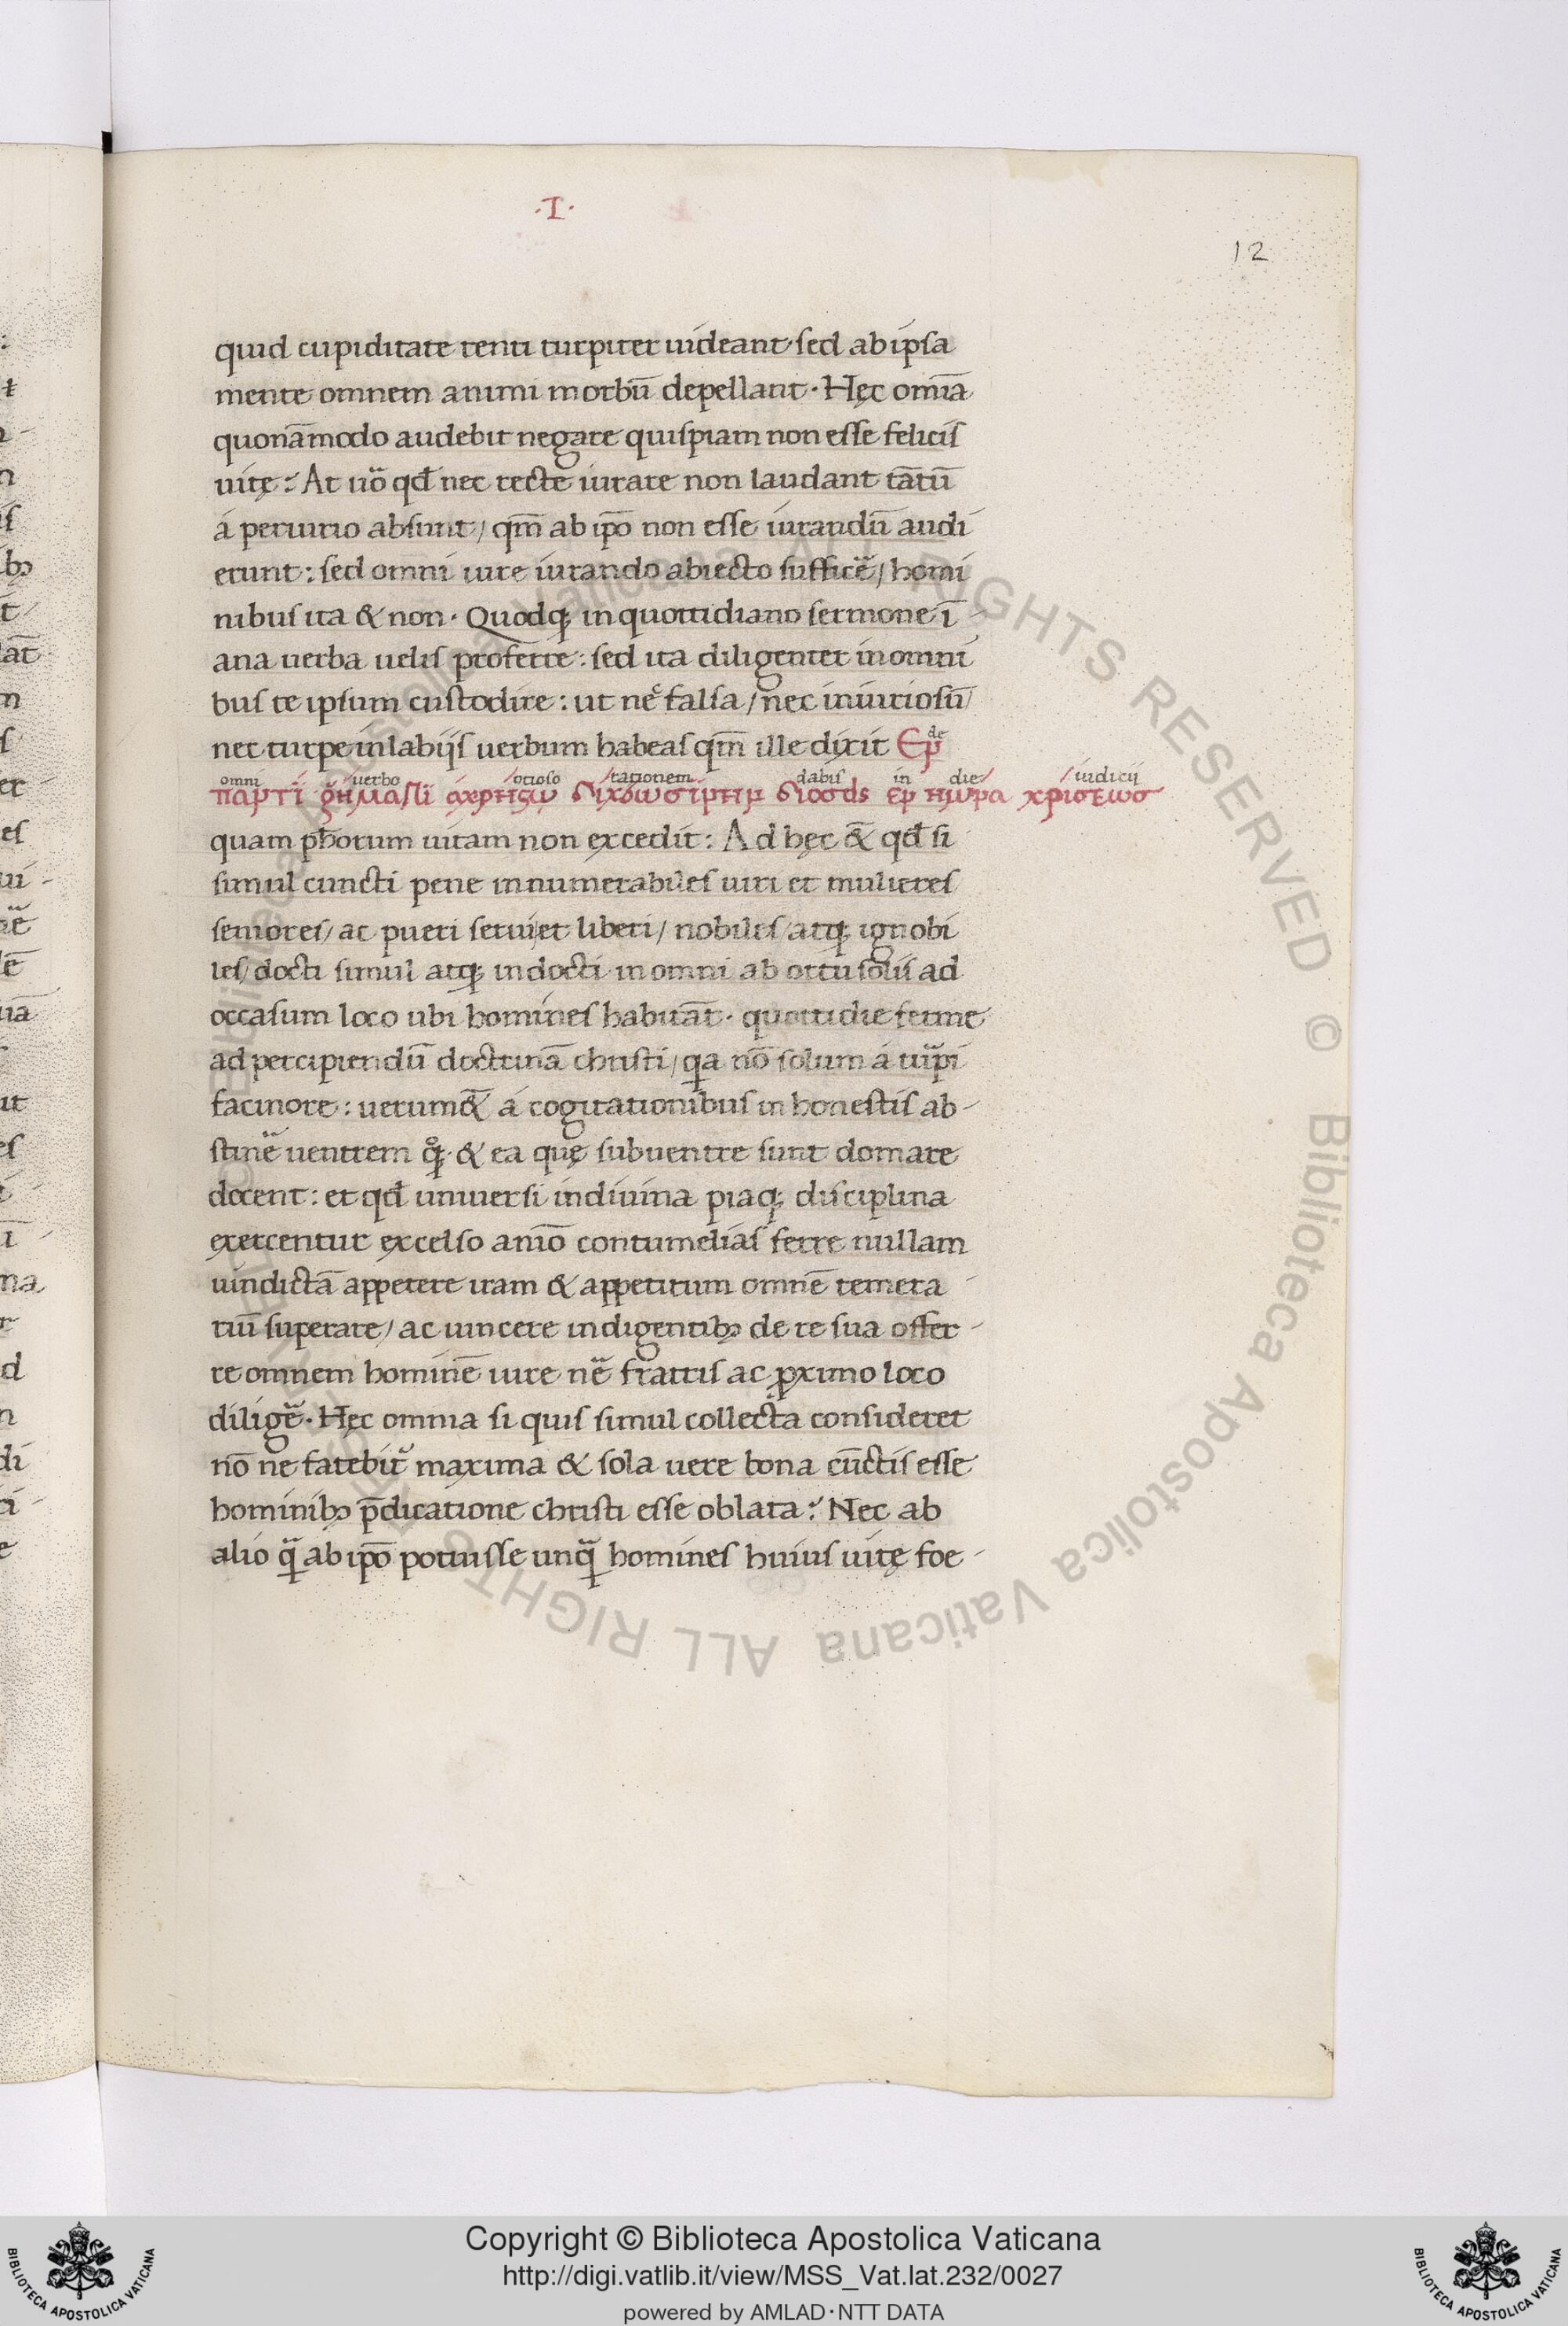 ·I·
12
quid cupiditate tenti turpiter uideant sed ab ipsa
mente omnem animi morbū depellant · Hęc omīa
quonāmodo audebit negare quispiam non esse felicis
uitę : At uo͂ qd̄ nec recte iurare non laudant tātū
á periurio absunt / qm̄ ab ip̄o non esse iurandū audi
erunt : sed omni iure iurando abiecto sufficẽ / homi
nibus ita & non · Quodq; in quottidiano sermone ī -
ana uerba uelis proferre : sed ita diligenter in omni
bus te ipsum custodire : ut ne᷒ falsa / nec iniuriosū
nec turpe in labijs uerbum habeas qm̄ ille dixit Ερ
de
omni uerbo otioso rationem dabis in die iudicij
παρτί
quam ph̄orum uitam non excedit : Ad hęc &̄ qd̄ si
simul cuncti pene innumerabiles uiri et mulieres
seniores / ac pueri serui et liberi / nobiles / atq; ignobi
les / docti simul atq; indocti in omni ab ortu solis ad
occasum loco ubi homines habitāt · quottidie ferme
ad percipiendū doctrinā christi / qa nō solum á tur̃pi
facinore : uerum &̄ á cogitationibus in honestis ab -
stinẽ uentrem q; & ea quę sub uentre sunt domare
docent : et qd̄ uniuersi in diuina piaq; disciplina
exercentur excelso anīo contumelias ferre nullam
uindictā appetere iram & appetitum omnē temera -
riū superare / ac uincere indigentibꝫ de re sua offer -
re omnem hominē iure nẽ frattis ac proximo loco
diligẽ · Hęc omnia si quis simul collecta consideret
nō ne fatebit᷑ maxima & sola uere bona cūctis esse
hominibꝫ p̄dicatione christi esse oblata : Nec ab
alio q̃ ab ip̄o potuisse unq̃ homines huius uitę foe -
Copyright © Biblioteca Apostolica Vaticana
http://digi.vatlib.it/view/MSS_Vat.lat.232/0027
powered by AMLAD·NTT DATA
BIBLIOTECA APOSTOLICA VATICANA
BIBLIOTECA APOSTOLICA VATICANA